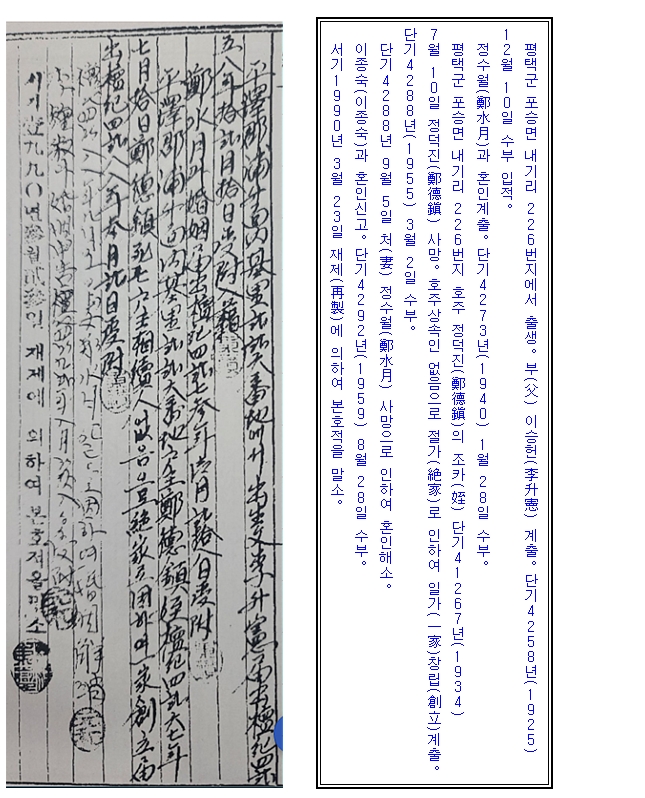 平澤郡浦升面內基里貳貳六番地에서 出生 父 李升憲 屆出 檀紀四貳
五八年拾貳月拾日受附 入籍
鄭水月과 婚姻屆出 檀紀四貳七參年壹月貳拾八日受附
平澤郡浦升面內基里貳貳六番地 戶主 鄭德鎭 姪 檀紀四貳六七年
七月拾日 鄭德鎭 死亡 戶主相續人 없음으로 絶家로 因하여 一家創立屆
出檀紀四貳八八年參月貳日受附
因하여 婚姻解消
서기壹九九〇년參월貳參일 재제에 의하여 본호적을 말소
평택군 포승면 내기리 226번지에서 출생。부(父) 이승헌(李升憲) 계출。단기4258년(1925)
12월 10일 수부 입적。
정수월(鄭水月)과 혼인계출。단기4273년(1940) 1월 28일 수부。
평택군 포승면 내기리 226번지 호주 정덕진(鄭德鎭)의 조카(姪) 단기41267년(1934)
7월 10일 정덕진(鄭德鎭) 사망。호주상속인 없음으로 절가(絶家)로 인하여 일가(一家)창립(創立)계출。
단기4288년(1955) 3월 2일 수부。
단기4288년 9월 5일 처(妻) 정수월(鄭水月) 사망으로 인하여 혼인해소。
이종숙(이종숙)과 혼인신고。단기4292년(1959) 8월 28일 수부。
서기1990년 3월 23일 재제(再製)에 의하여 본호적을 말소。